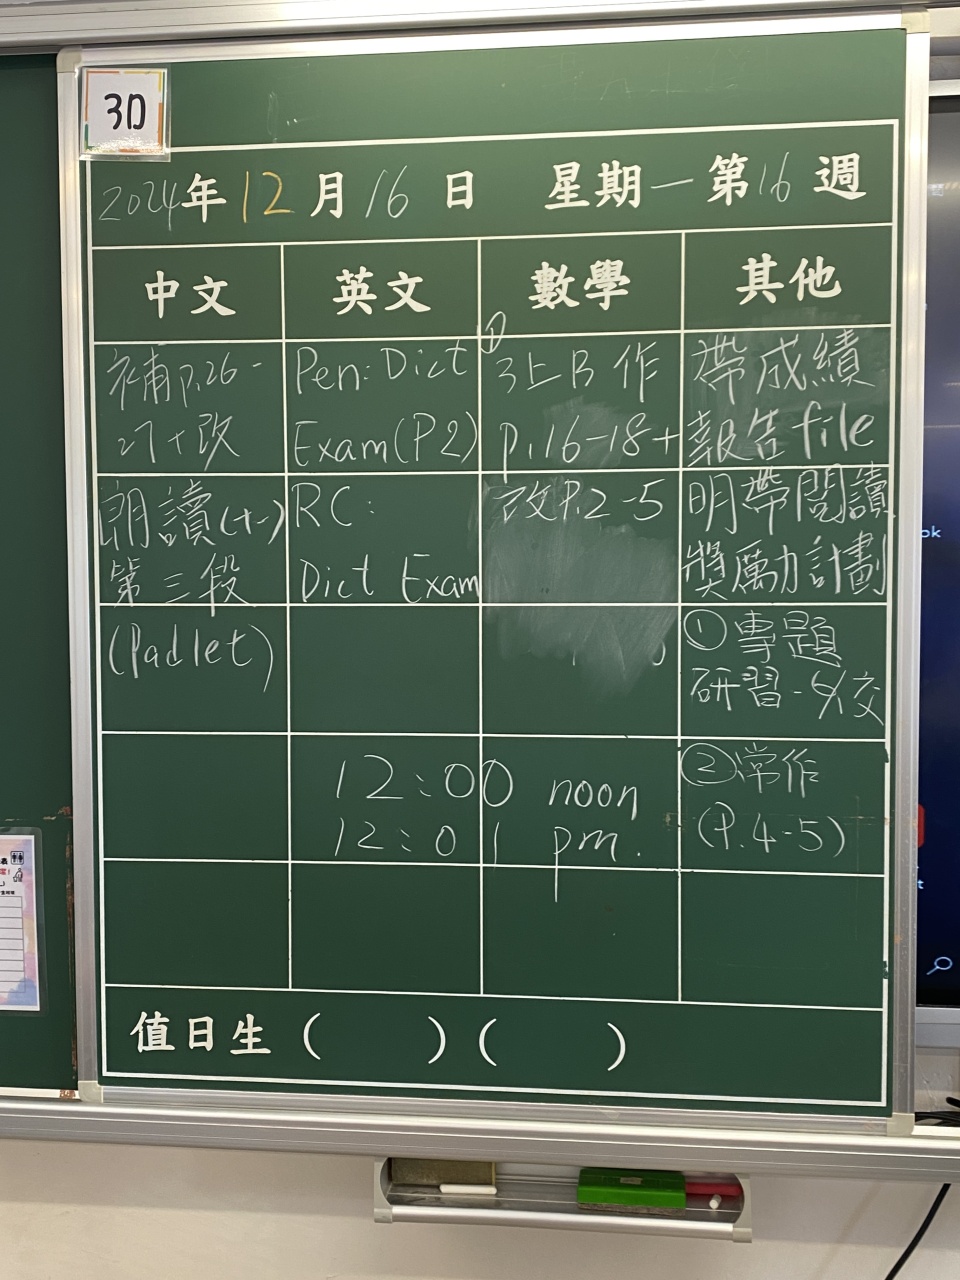 3D
2024年12月16日 星期一第16週
中文 英文 數學 其他
補P.26-
27+改
朗讀(十一)
第三段
(Padlet)
Pen: Dict
Exam (P2)
RC:
Dict Exam
①
3上B作
P.16-18+
改P.2-5
帶成績
報告file
明帶閱讀
獎勵計劃
①專題
研習-
交
②常作
(P.4-5)
12:00 noon
12:01 pm.
值日生( )( )